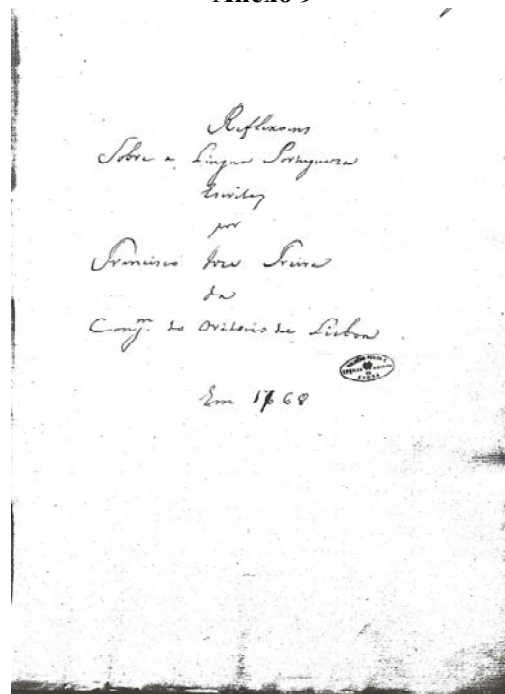 Anexo 9
Reflexoens
Sobre a Lingua Portugueza
Escritas
por
Francisco Joze Freire
da
Congm. do Oratorio de Lisboa
Em 1768